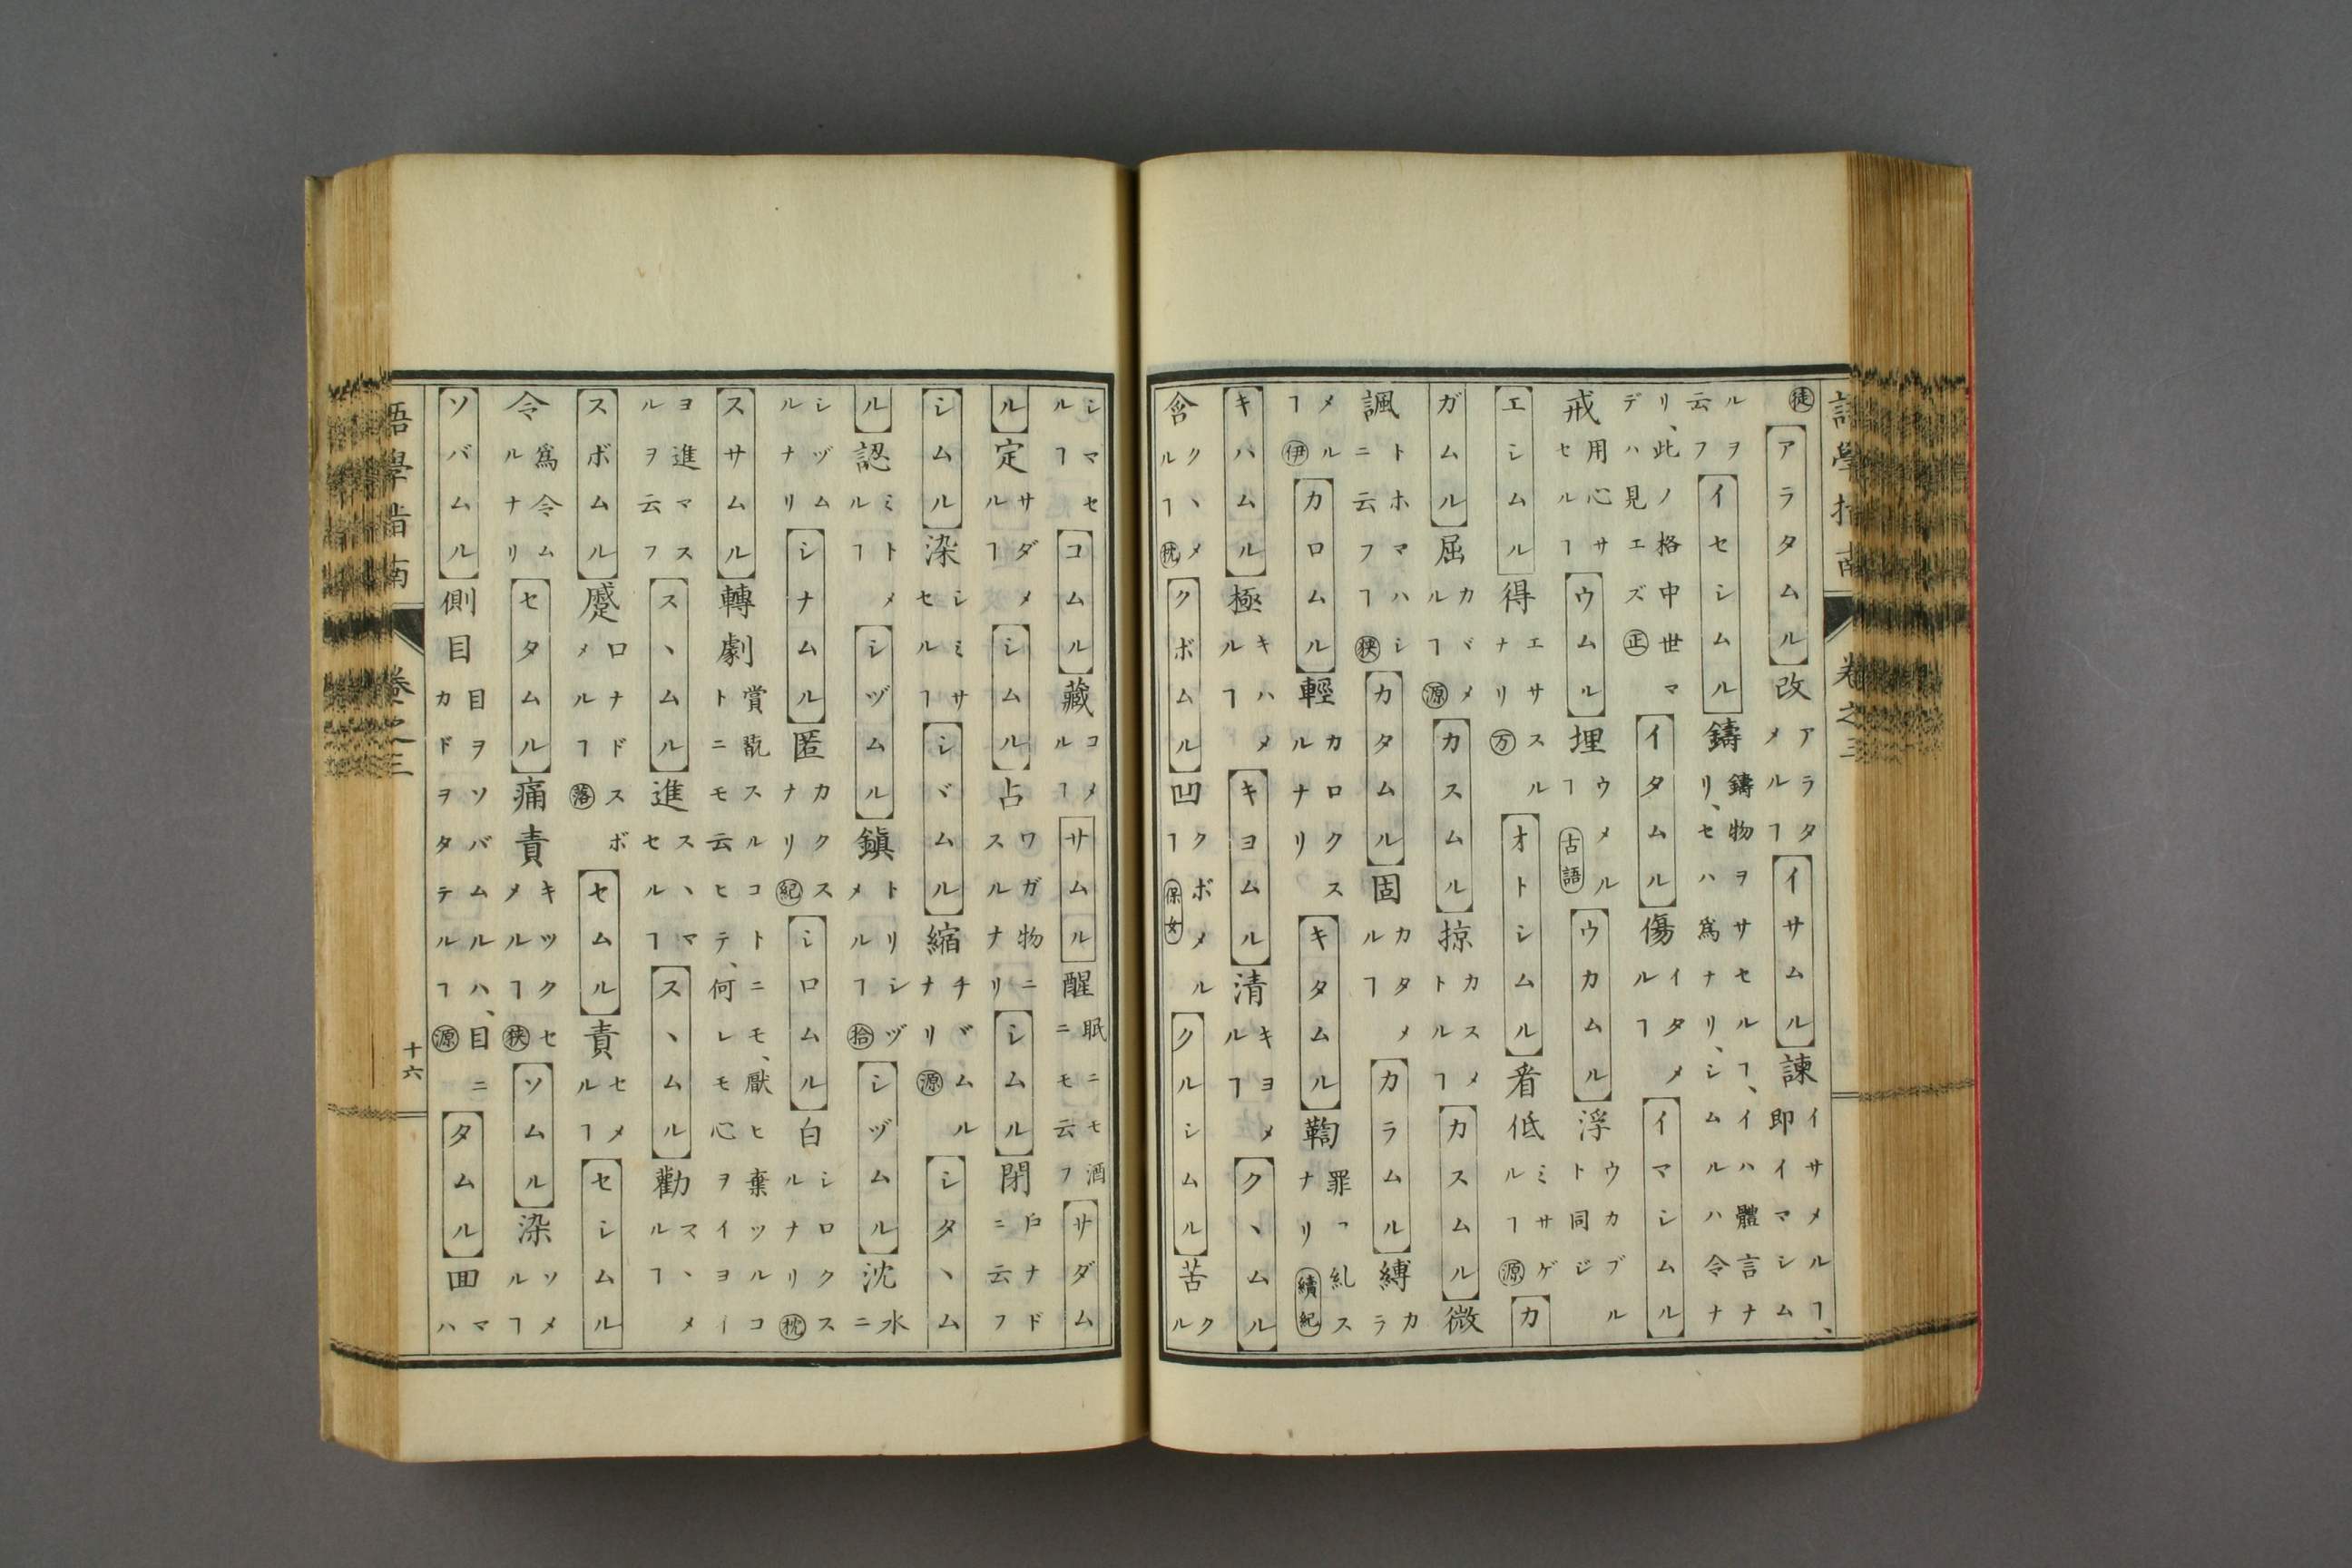 語學指南 卷之三
徒 アラタムル 改 アラタメルヿ イサムル 諫 イサメルヿ、即イマシム
ルヲ云フ イセシムル 鑄 鑄物ヲサセルヿ、イハ體言ナリ、セハ爲ナリ、シムルハ令ナ
リ、此ノ格中世マデハ見エズ 正 イタムル 傷 イタメルヿ イマシムル
戒 用心サセルヿ ウムル 埋 ウメルヿ 古語 ウカムル 浮 ウカブルト同ジ
エシムル 得 エサスルナリ 万 オトシムル 看低 ミサゲルヿ 源 カ
ガムル 屈 カヾメルヿ 源 カスムル 掠 カスメトルヿ カスムル 微
諷 トホマハシニ云フヿ 狭 カタムル 固 カタメルヿ カラムル 縛 カラ
メルヿ 伊 カロムル 輕 カロクスルナリ キタムル 鞫 罪ヿ糺スナリ 續紀
キハムル 極 キハメルヿ キヨムル 清 キヨメルヿ クヽムル
含 クヽメルヿ 枕 クボムル 凹 クボメルヿ 保女 クルシムル 苦 クル
シマセルヿ コムル 藏 コメルヿ サムル 醒 眠ニモ酒ニモ云フ サダム
ル 定 サダメルヿ シムル 占 ワガ物ニスルナリ シムル 閉 戸ナドニ云フ
シムル 染 シミサセルヿ シヾムル 縮 チヾムルナリ 源 シタヽム
ル 認 ミトメルヿ シヅムル 鎮 トリシヅメルヿ 拾 シヅムル 沈 水ニ
シヅムルナリ シナムル 匿 カクスナリ 紀 シロムル 白 シロクスルナリ 枕
スサムル 轉劇 賞翫スルコトニモ、厭ヒ棄ツルコトニモ云ヒテ、何レモ心ヲイヨイ
ヨ進マスルヲ云フ スヽムル 進 スヽマセルヿ スヽムル 勸 スヽメルヿ
スボムル 蹙 口ナドスボメルヿ 落 セムル 責 セメルヿ セシムル
令 爲令ムルナリ セタムル 痛責 キツクセメルヿ 狭 ソムル 染 ソメルヿ
ソバムル 側目 目ヲソバムルハ、目ニカドヲタテルヿ 源 タムル 囬 マハ
語學指南 卷之三 十六